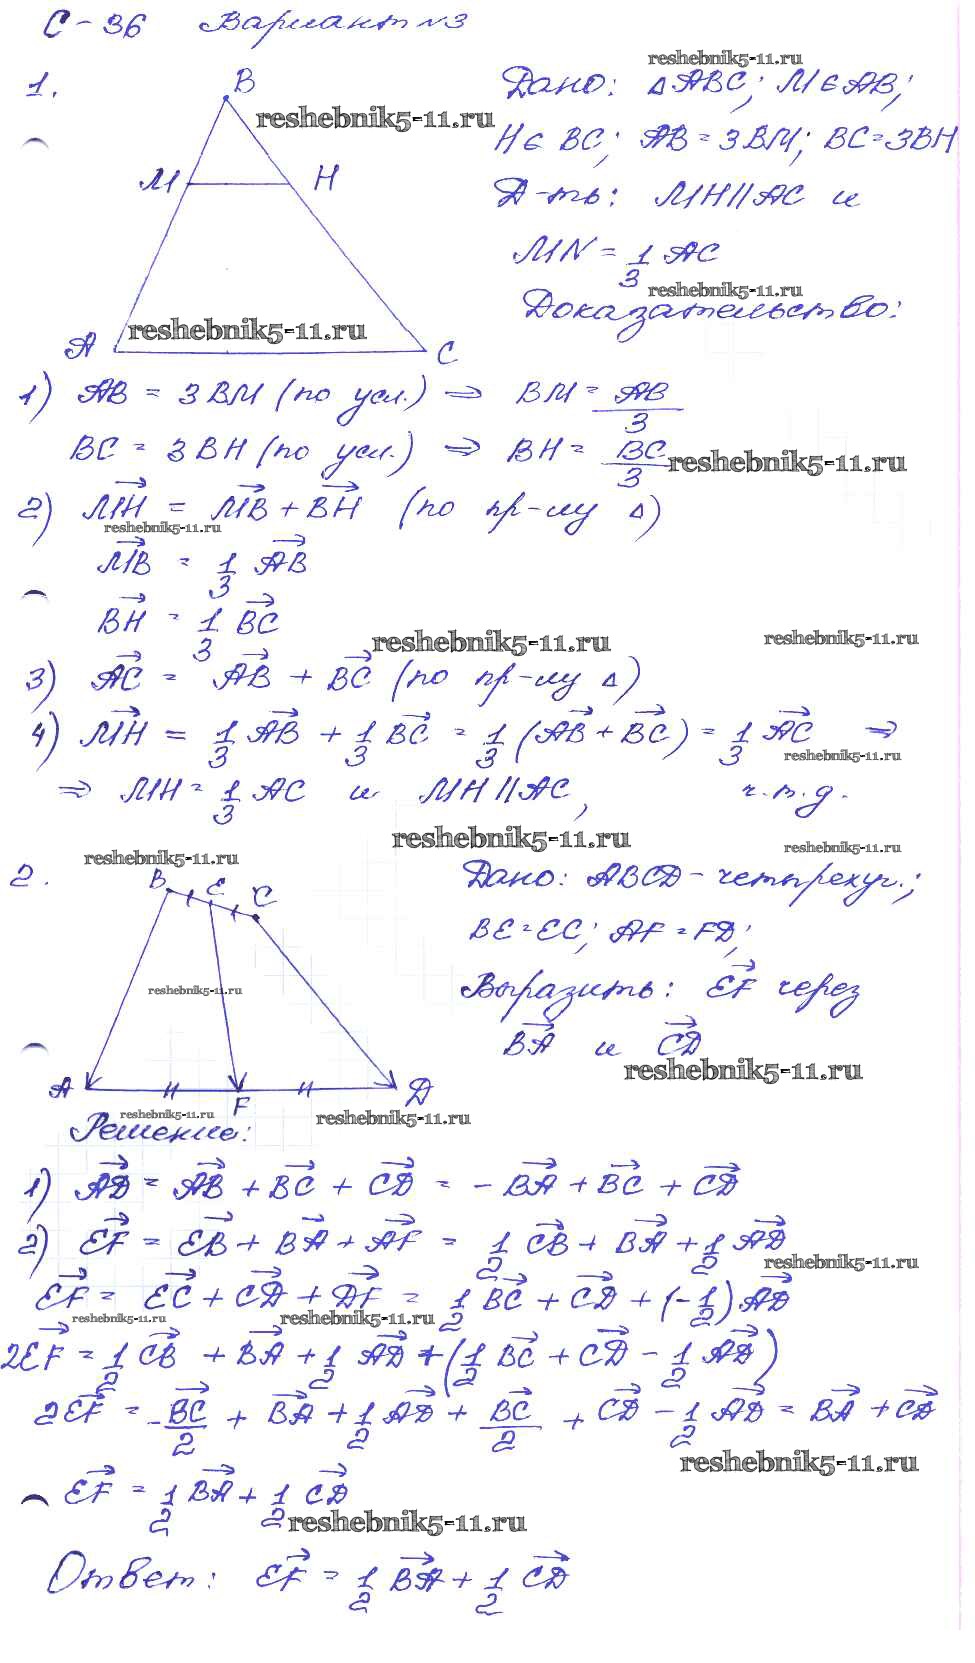 С-36 Вариант №3
reshebnik5-11.ru
1. B
Дано: △ABC; M∈AB;
reshebnik5-11.ru
H∈ BC; AB=3BM; BC=3BH
M H
Д-ть: MH||AC и
MN = 1/3 AC
reshebnik5-11.ru
Доказательство:
reshebnik5-11.ru
A C
1) AB = 3BM (по усл.) ⇒ BM = AB/3
BC = 3BH (по усл.) ⇒ BH = BC/3
reshebnik5-11.ru
2) MH = MB + BH (по пр-лу △)
reshebnik5-11.ru
MB = 1/3 AB
BH = 1/3 BC
reshebnik5-11.ru reshebnik5-11.ru
3) AC = AB + BC (по пр-лу △)
4) MH = 1/3 AB + 1/3 BC = 1/3 (AB + BC) = 1/3 AC ⇒
reshebnik5-11.ru
⇒ MH = 1/3 AC и MH || AC, ч.т.д.
reshebnik5-11.ru reshebnik5-11.ru
reshebnik5-11.ru
2. B E C
Дано: ABCD - четырехуг.;
BE=EC; AF=FD;
reshebnik5-11.ru
Выразить: EF через
BA и CD
reshebnik5-11.ru
A F D
reshebnik5-11.ru reshebnik5-11.ru
Решение:
1) AD = AB + BC + CD = -BA + BC + CD
2) EF = EB + BA + AF = 1/2 CB + BA + 1/2 AD
reshebnik5-11.ru
EF = EC + CD + DF = 1/2 BC + CD + (-1/2) AD
reshebnik5-11.ru reshebnik5-11.ru
2EF = 1/2 CB + BA + 1/2 AD + (1/2 BC + CD - 1/2 AD)
2EF = -BC/2 + BA + 1/2 AD + BC/2 + CD - 1/2 AD = BA + CD
reshebnik5-11.ru
EF = 1/2 BA + 1/2 CD
reshebnik5-11.ru
Ответ: EF = 1/2 BA + 1/2 CD